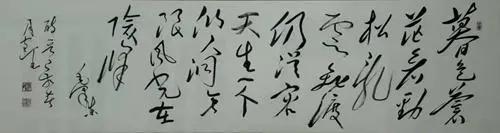 暮色蒼
茫看勁
松亂
雲飛渡
仍從容
天生一个
仙人洞无
限風光在
險峰
毛澤東